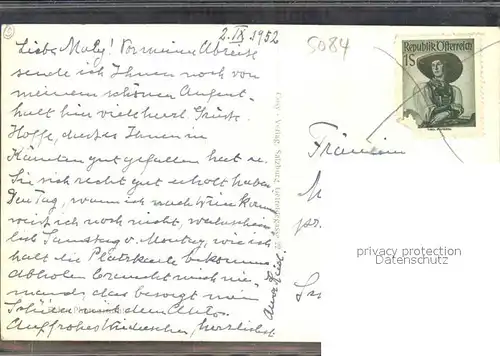 2. IX 1952
5084
Liebe Maly! Vor meiner Abreise
sende ich Ihnen noch von
meinem schönen Aufent-
halt hier viele herzl. Grüße.
Hoffe, dass es Ihnen in
Kärnten gut gefallen hat u.
Sie sich recht gut erholt haben.
Den Tag, wann ich nach Wien komme
weiß ich noch nicht, wahrschein-
lich Samstag o. Montag, wie ich
halt die Platzkarte bekomme.
Abholen braucht mich nie-
mand, das besorgt mein
mit dem Auto.
Auf frohes Wiedersehen, herzlichst
Republik Österreich
1S
Fräulein
privacy protection
Datenschutz